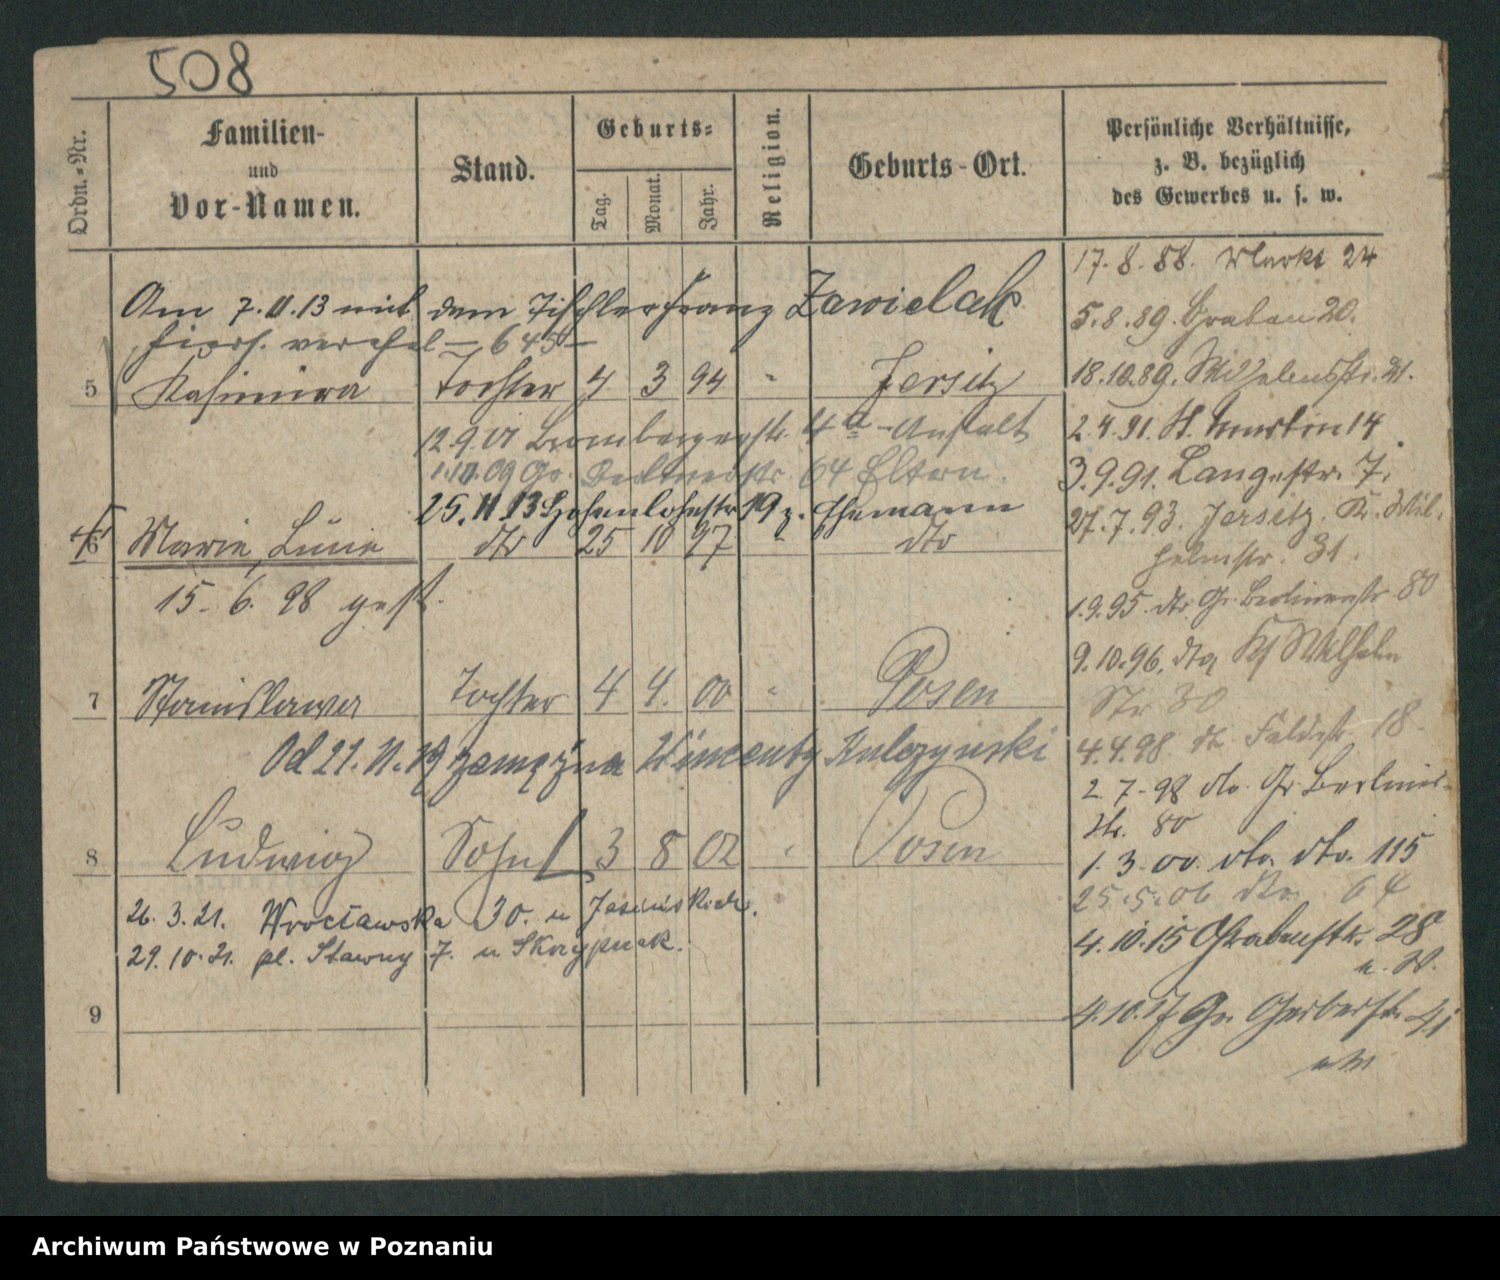 508
Ordn.-Nr.
Familien-
und
Vor-Namen.
Stand.
Geburts-
Tag.
Monat.
Jahr.
Religion.
Geburts-Ort.
Persönliche Verhältnisse,
z. B. bezüglich
des Gewerbes u. s. w.
Am 7.11.13 mit dem Tischler Franz Zawielak
hiers. verehel — 645 —
5 Kasimira Tochter 4 3 94 " Jersitz
12.9.01 Brombergerstr. 4a - Anstalt
1.10.09 Gr. Berlinerstr. 64 Eltern.
25.11.13 Hohenlohestr 19 z. Ehemann
6 Marie, Lucie dto 25 10 97 " dto
15. 6. 98 gest.
7 Stanislawa Tochter 4 4. 00 " Posen
Od 21.11.19 zamężna Wincenty Kulczynski
8 Ludwig Sohn 3 8 02 " Posen
26. 3. 21. Wrocławska 30. u
29.10.21. pl. Stawny 7. u Skrzypczak.
9
17. 8. 88. Markt 24
5.8.89. Graben 20.
18.10.89. Wilhelmstr. 21.
2.4.91. St. Martin 14
3.9.91. Langestr. 7.
27.7.93. Jersitz. Kr. Wil-
helmstr. 31.
1.9.95. dto Gr. Berlinerstr 80
9.10.96. dto Ks Wilhelm
Str 30
4.4.98. dto Feldstr. 18
2. 7. 98 dto. Gr. Berliner-
str. 80
1. 3. 00. dto. dto. 115
25.5.06 dto. 64
4.10.15 Grabenstr. 28
u. W.
4.10.17 Gr. Gerberstr. 41